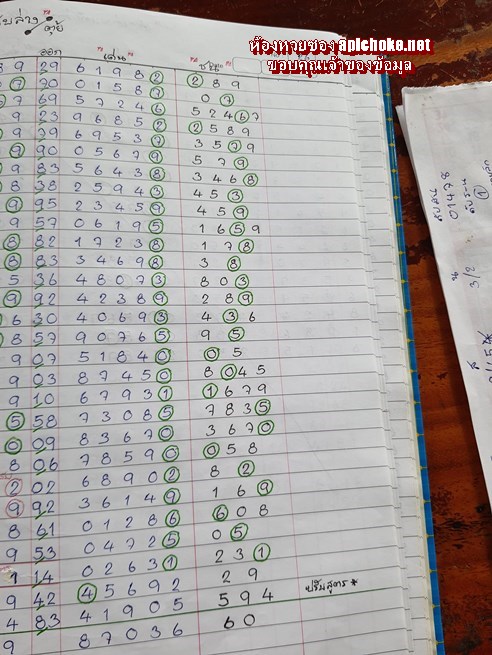 ห้องหวยซอง aplchoke.net
ขอบคุณเจ้าของข้อมูล
ออก เด่น
9 29 6 1 9 8 2 2 8 9
7 70 0 1 5 8 7 0 7
7 69 5 7 2 4 6 5 2 4 6 7
9 23 9 6 8 5 2 2 5 8 9
9 79 6 9 5 3 7 3 5 7 9
7 90 0 5 6 7 9 5 7 9
9 83 5 6 4 3 8 3 4 6 8
8 38 2 5 9 4 3 4 5 3
9 95 2 3 4 5 9 4 5 9
9 57 0 6 1 9 5 1 6 5 9
8 82 1 7 2 3 8 1 7 8
8 83 3 4 6 9 8 3 8
5 36 4 8 0 7 3 8 0 3
9 92 4 2 3 8 9 2 8 9
6 30 4 0 6 9 3 4 3 6
8 57 9 0 7 6 5 9 5
9 07 5 1 8 4 0 0 5
9 03 8 7 4 5 0 8 0 4 5
9 10 6 7 9 3 1 1 6 7 9
5 58 7 3 0 8 5 7 8 3 5
0 09 8 3 6 7 0 3 6 7 0
8 06 7 8 5 9 0 0 5 8
2 02 6 8 9 0 2 8 2
9 92 3 6 1 4 9 1 6 9
8 61 0 1 2 8 6 6 0 8
9 53 0 4 7 2 5 0 5
1 14 0 2 6 3 1 2 3 1
9 42 4 5 6 9 2 2 9
4 83 4 1 9 0 5 5 9 4 ปรับสูตร *
9 8 7 0 3 6 6 0
01478
3/2